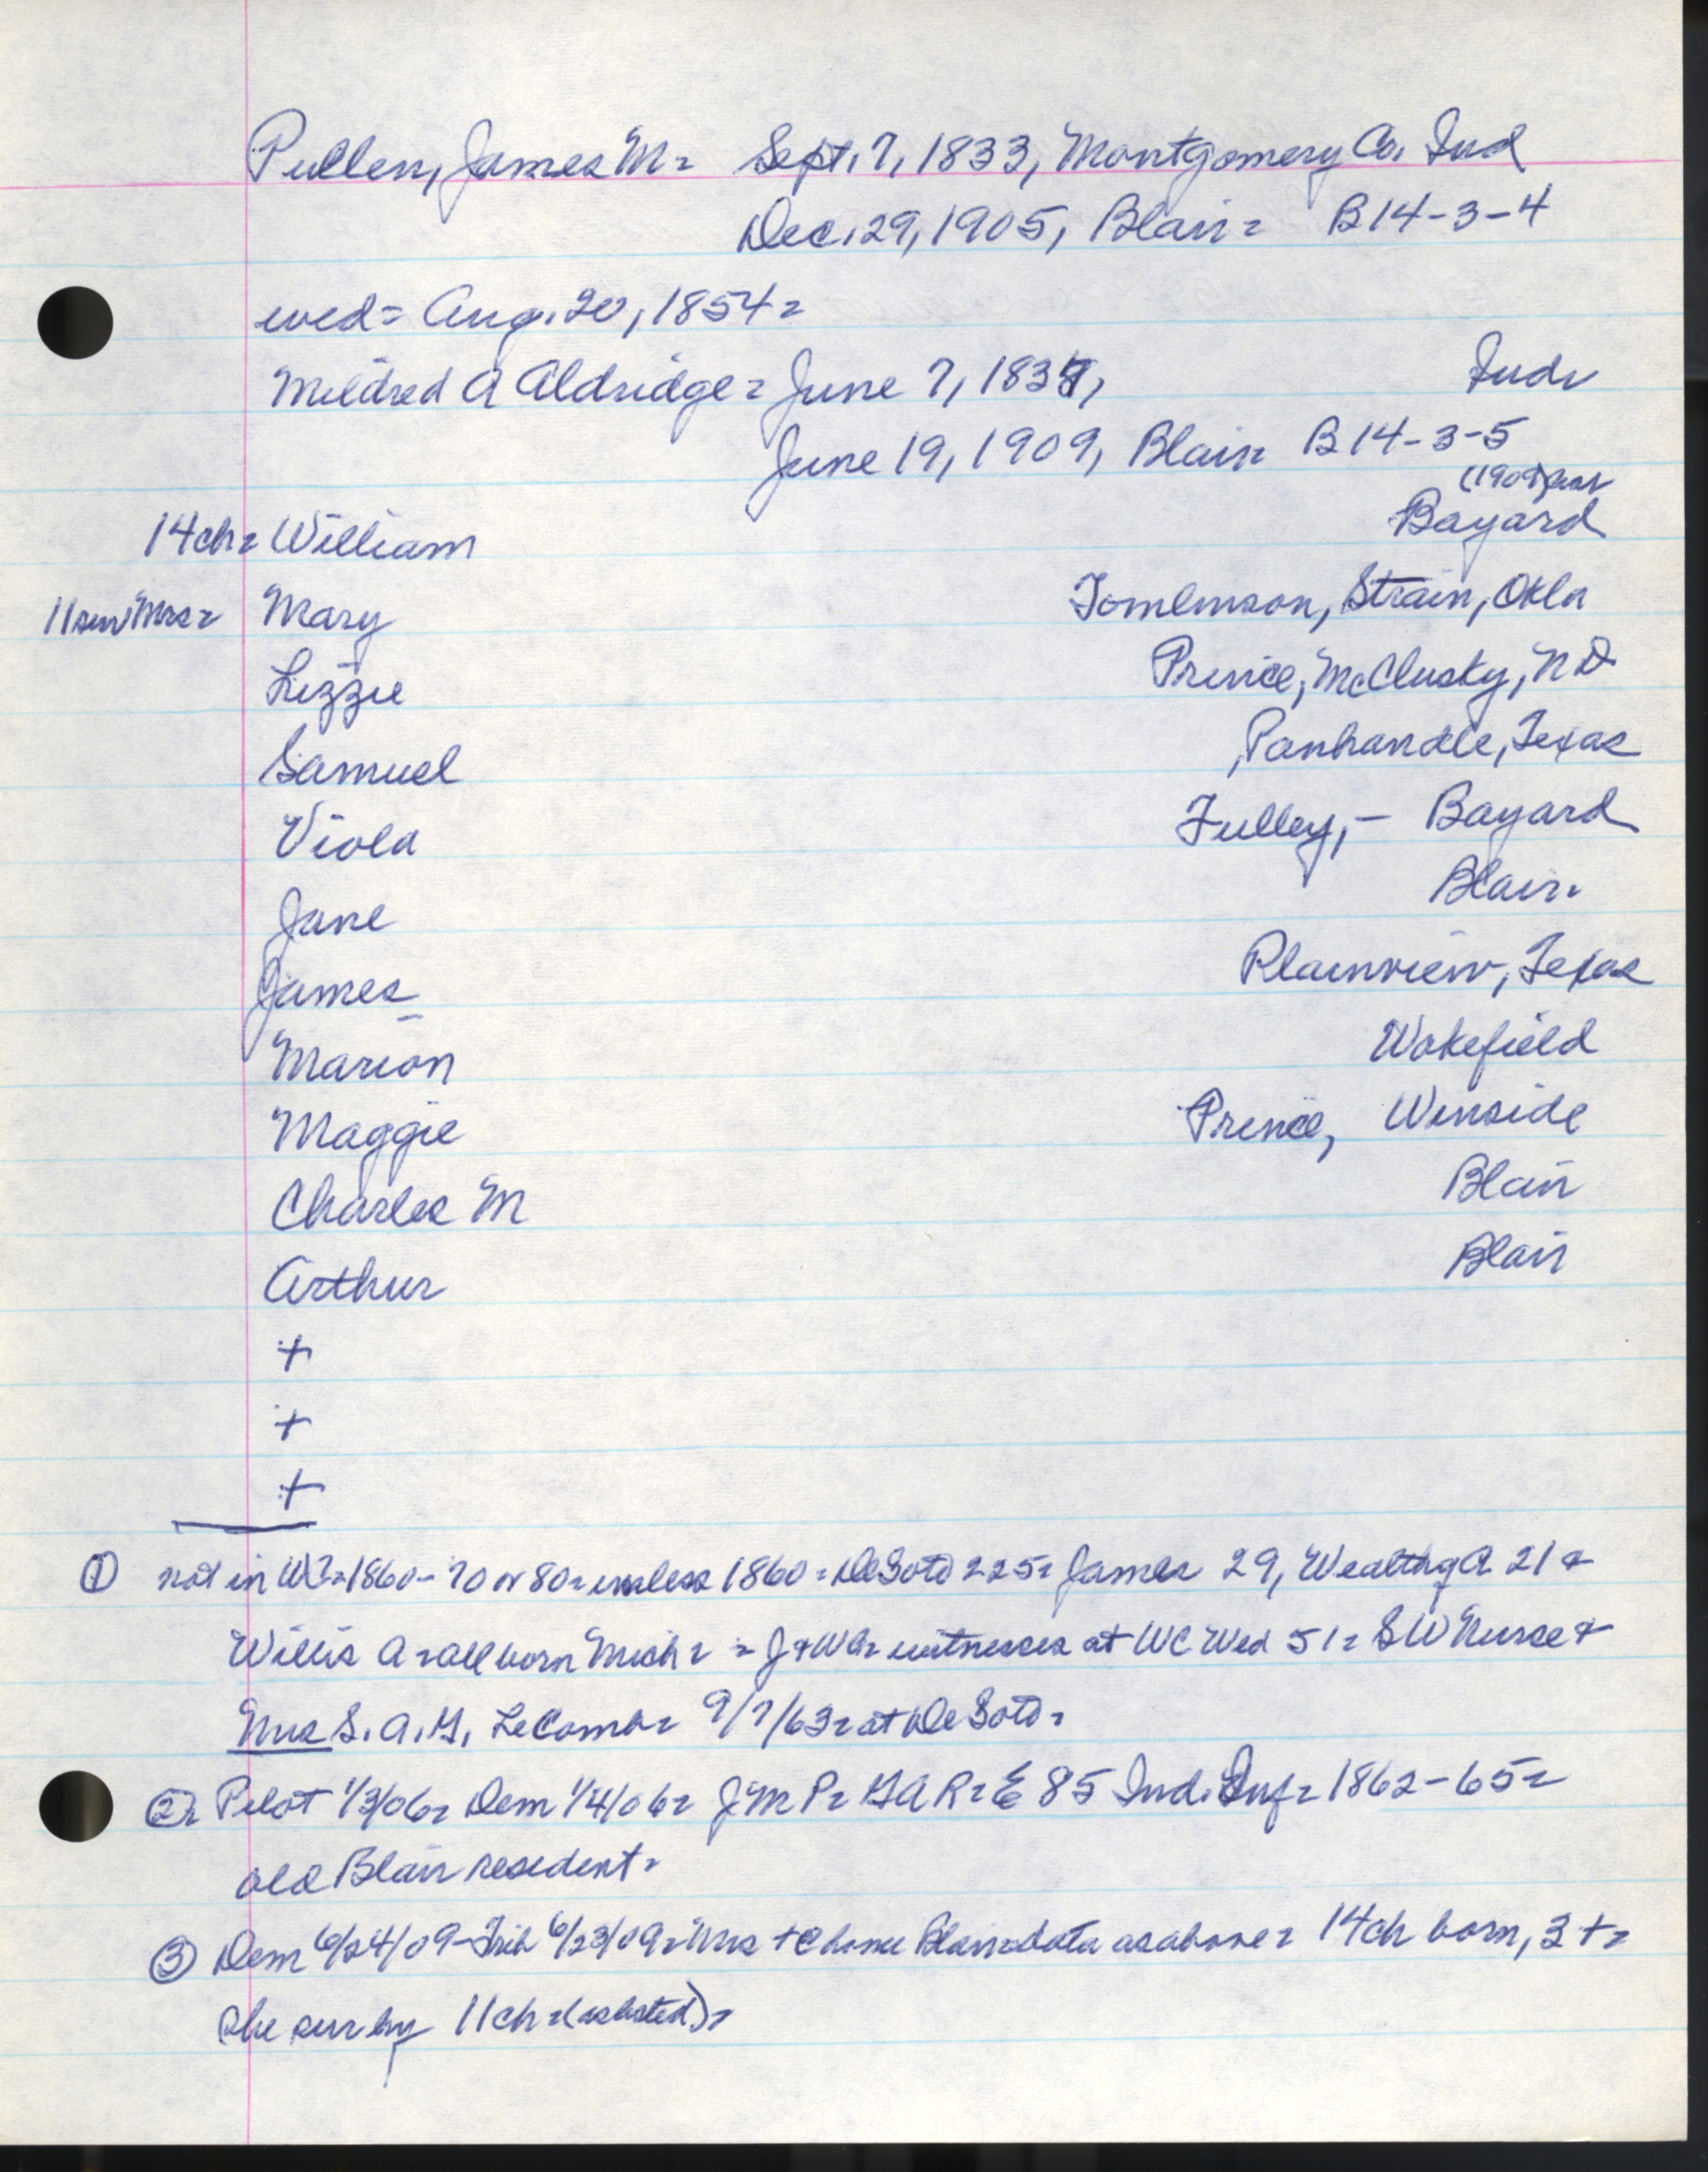 Pullen, James M= Sept. 7, 1833, Montgomery Co. Ind
Dec. 29, 1905, Blair= B14-3-4
wed= Aug. 20, 1854=
Mildred A Aldridge= June 7, 1837, Ind=
June 19, 1909, Blair= B14-3-5
(1909)
14ch= William Bayard
11 sur Mrs= Mary Tomlinson, Strain, Okla
Lizzie Prince, McClusky, ND
Samuel , Panhandle, Texas
Viola Fulley, - Bayard
Jane Blair=
James Plainview, Texas
Marion Wakefield
Maggie Prince, Winside
Charles M Blair
Arthur Blair
+
+
+
① not in WC=1860-70 or 80= unless 1860= DeSoto 225= James 29, Wealthy A 21 &
Willis A= all born Mich= = J & WA= witnesses at WC Wed 51= SW Nurse &
Mrs S. A. G. LeComb= 9/7/63= at DeSoto=
②= Pilot 1/3/06= Dem 1/4/06= JMP= GAR= E 85 Ind. Inf= 1862-65=
old Blair resident=
③ Dem 6/24/09- Trib 6/23/09= Mrs + @ home Blair= data as above= 14ch born, 3 +=
she sur by 11ch= (as listed)=